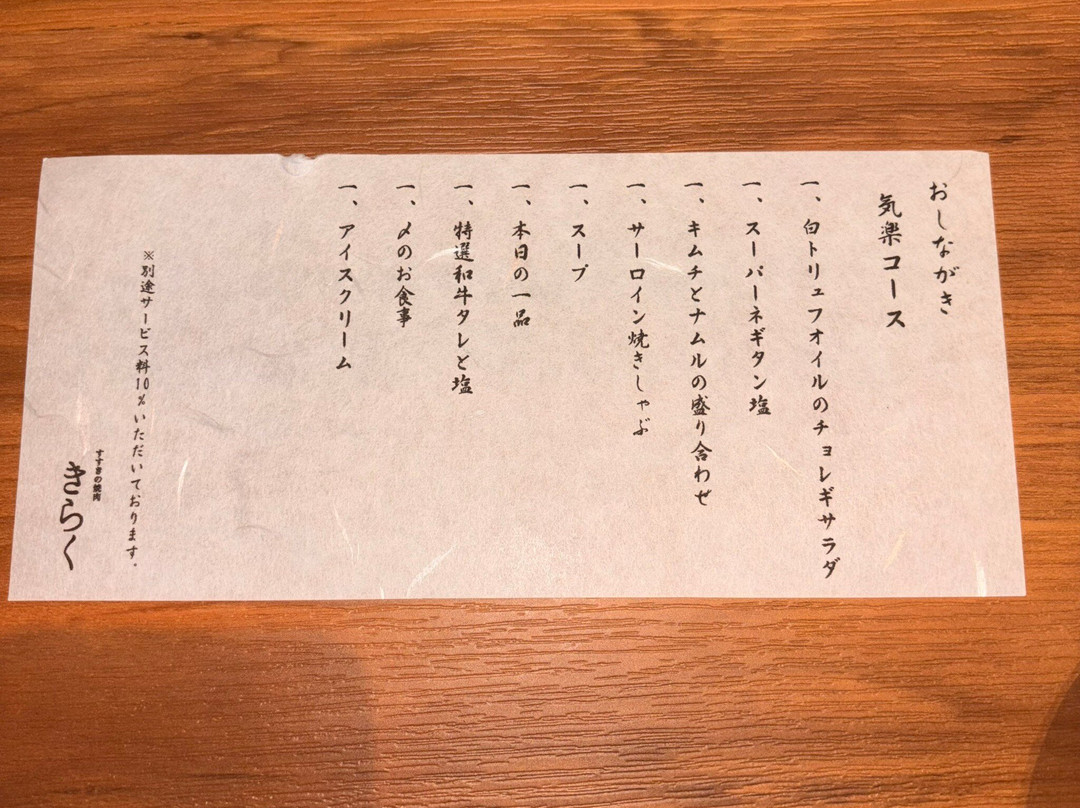 おしながき
気楽コース
一、白トリュフオイルのチョレギサラダ
一、スーパーネギタン塩
一、キムチとナムルの盛り合わせ
一、サーロイン焼きしゃぶ
一、スープ
一、本日の一品
一、特選和牛タレと塩
一、〆のお食事
一、アイスクリーム
※別途サービス料10%いただいております。
すすきの焼肉
きらく